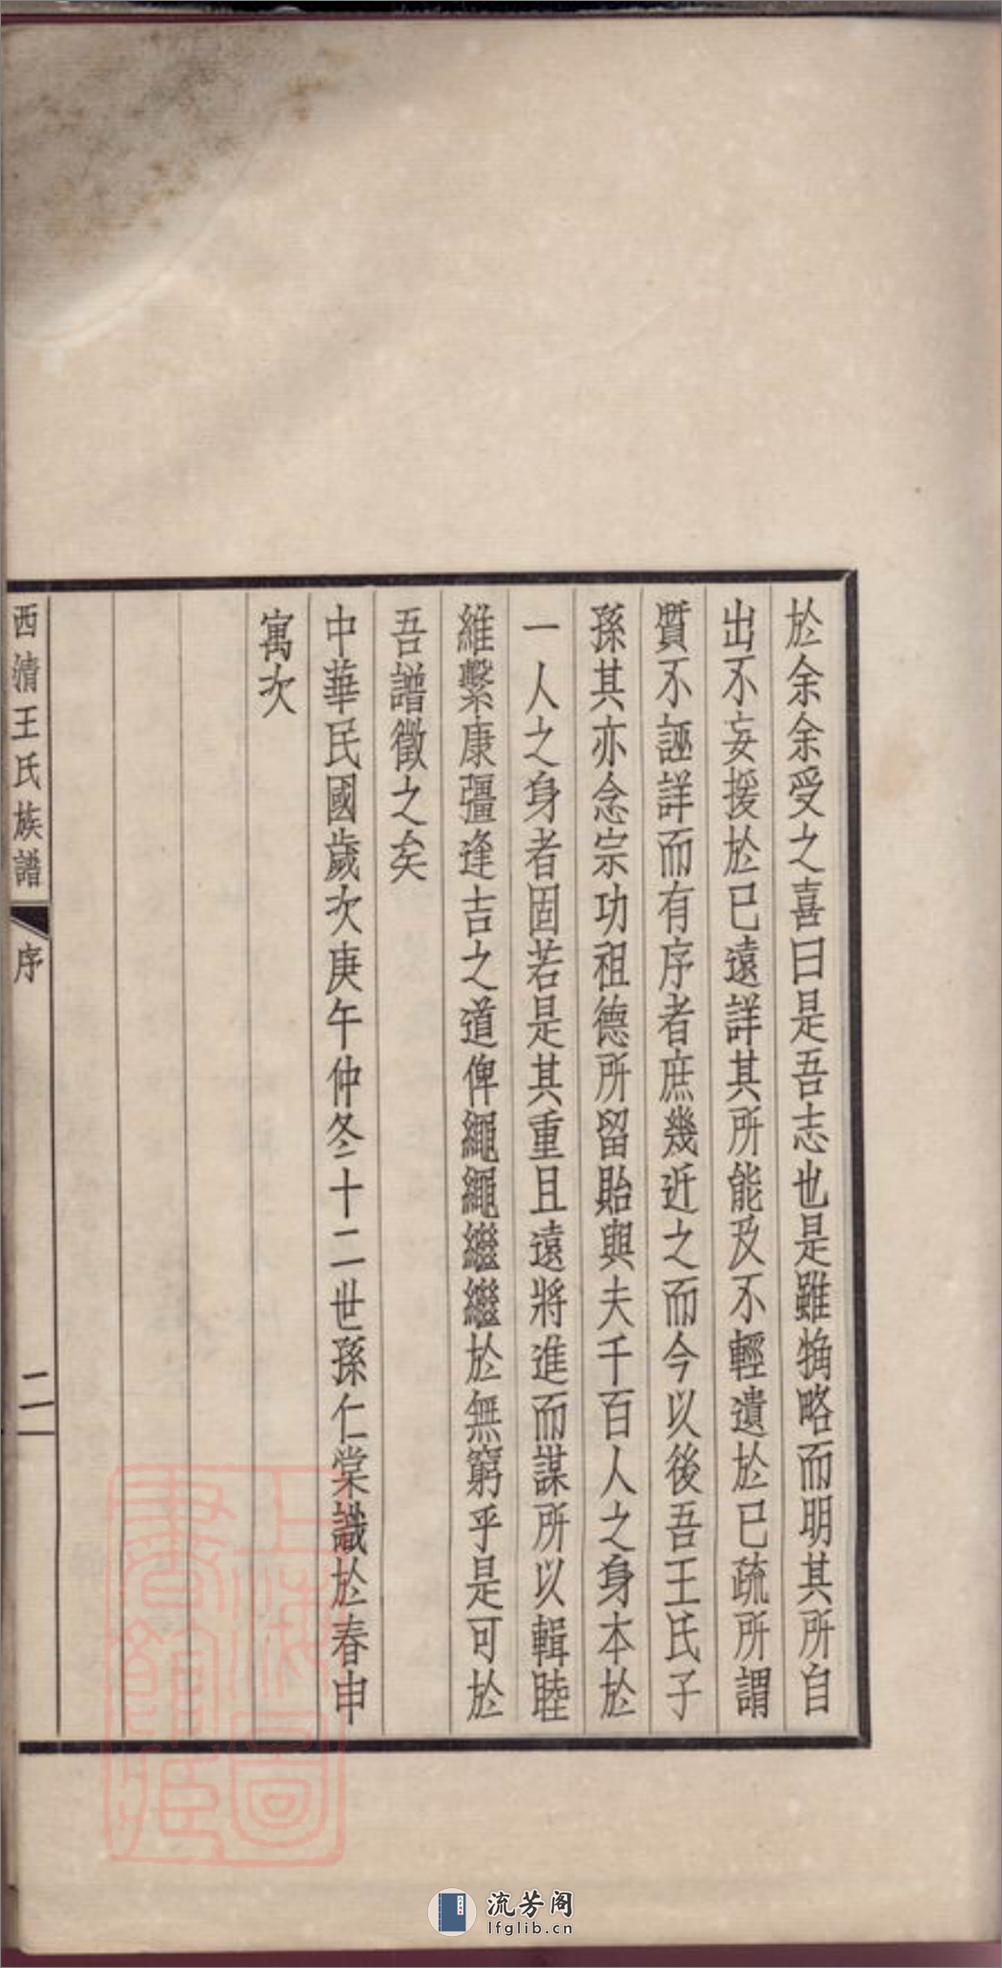 於余余受之喜曰是吾志也是雖觕略而明其所自
出不妄援於已遠詳其所能及不輕遺於已疏所謂
質不誣詳而有序者庶幾近之而今以後吾王氏子
孫其亦念宗功祖德所留貽與夫千百人之身本於
一人之身者固若是其重且遠將進而謀所以輯睦
維繫康彊逢吉之道俾繩繩繼繼於無窮乎是可於
吾譜徵之矣
中華民國歲次庚午仲冬十二世孫仁棠識於春申
寓次
西清王氏族譜
序
二
上海圖
書館藏
流芳阁
lfglib.cn